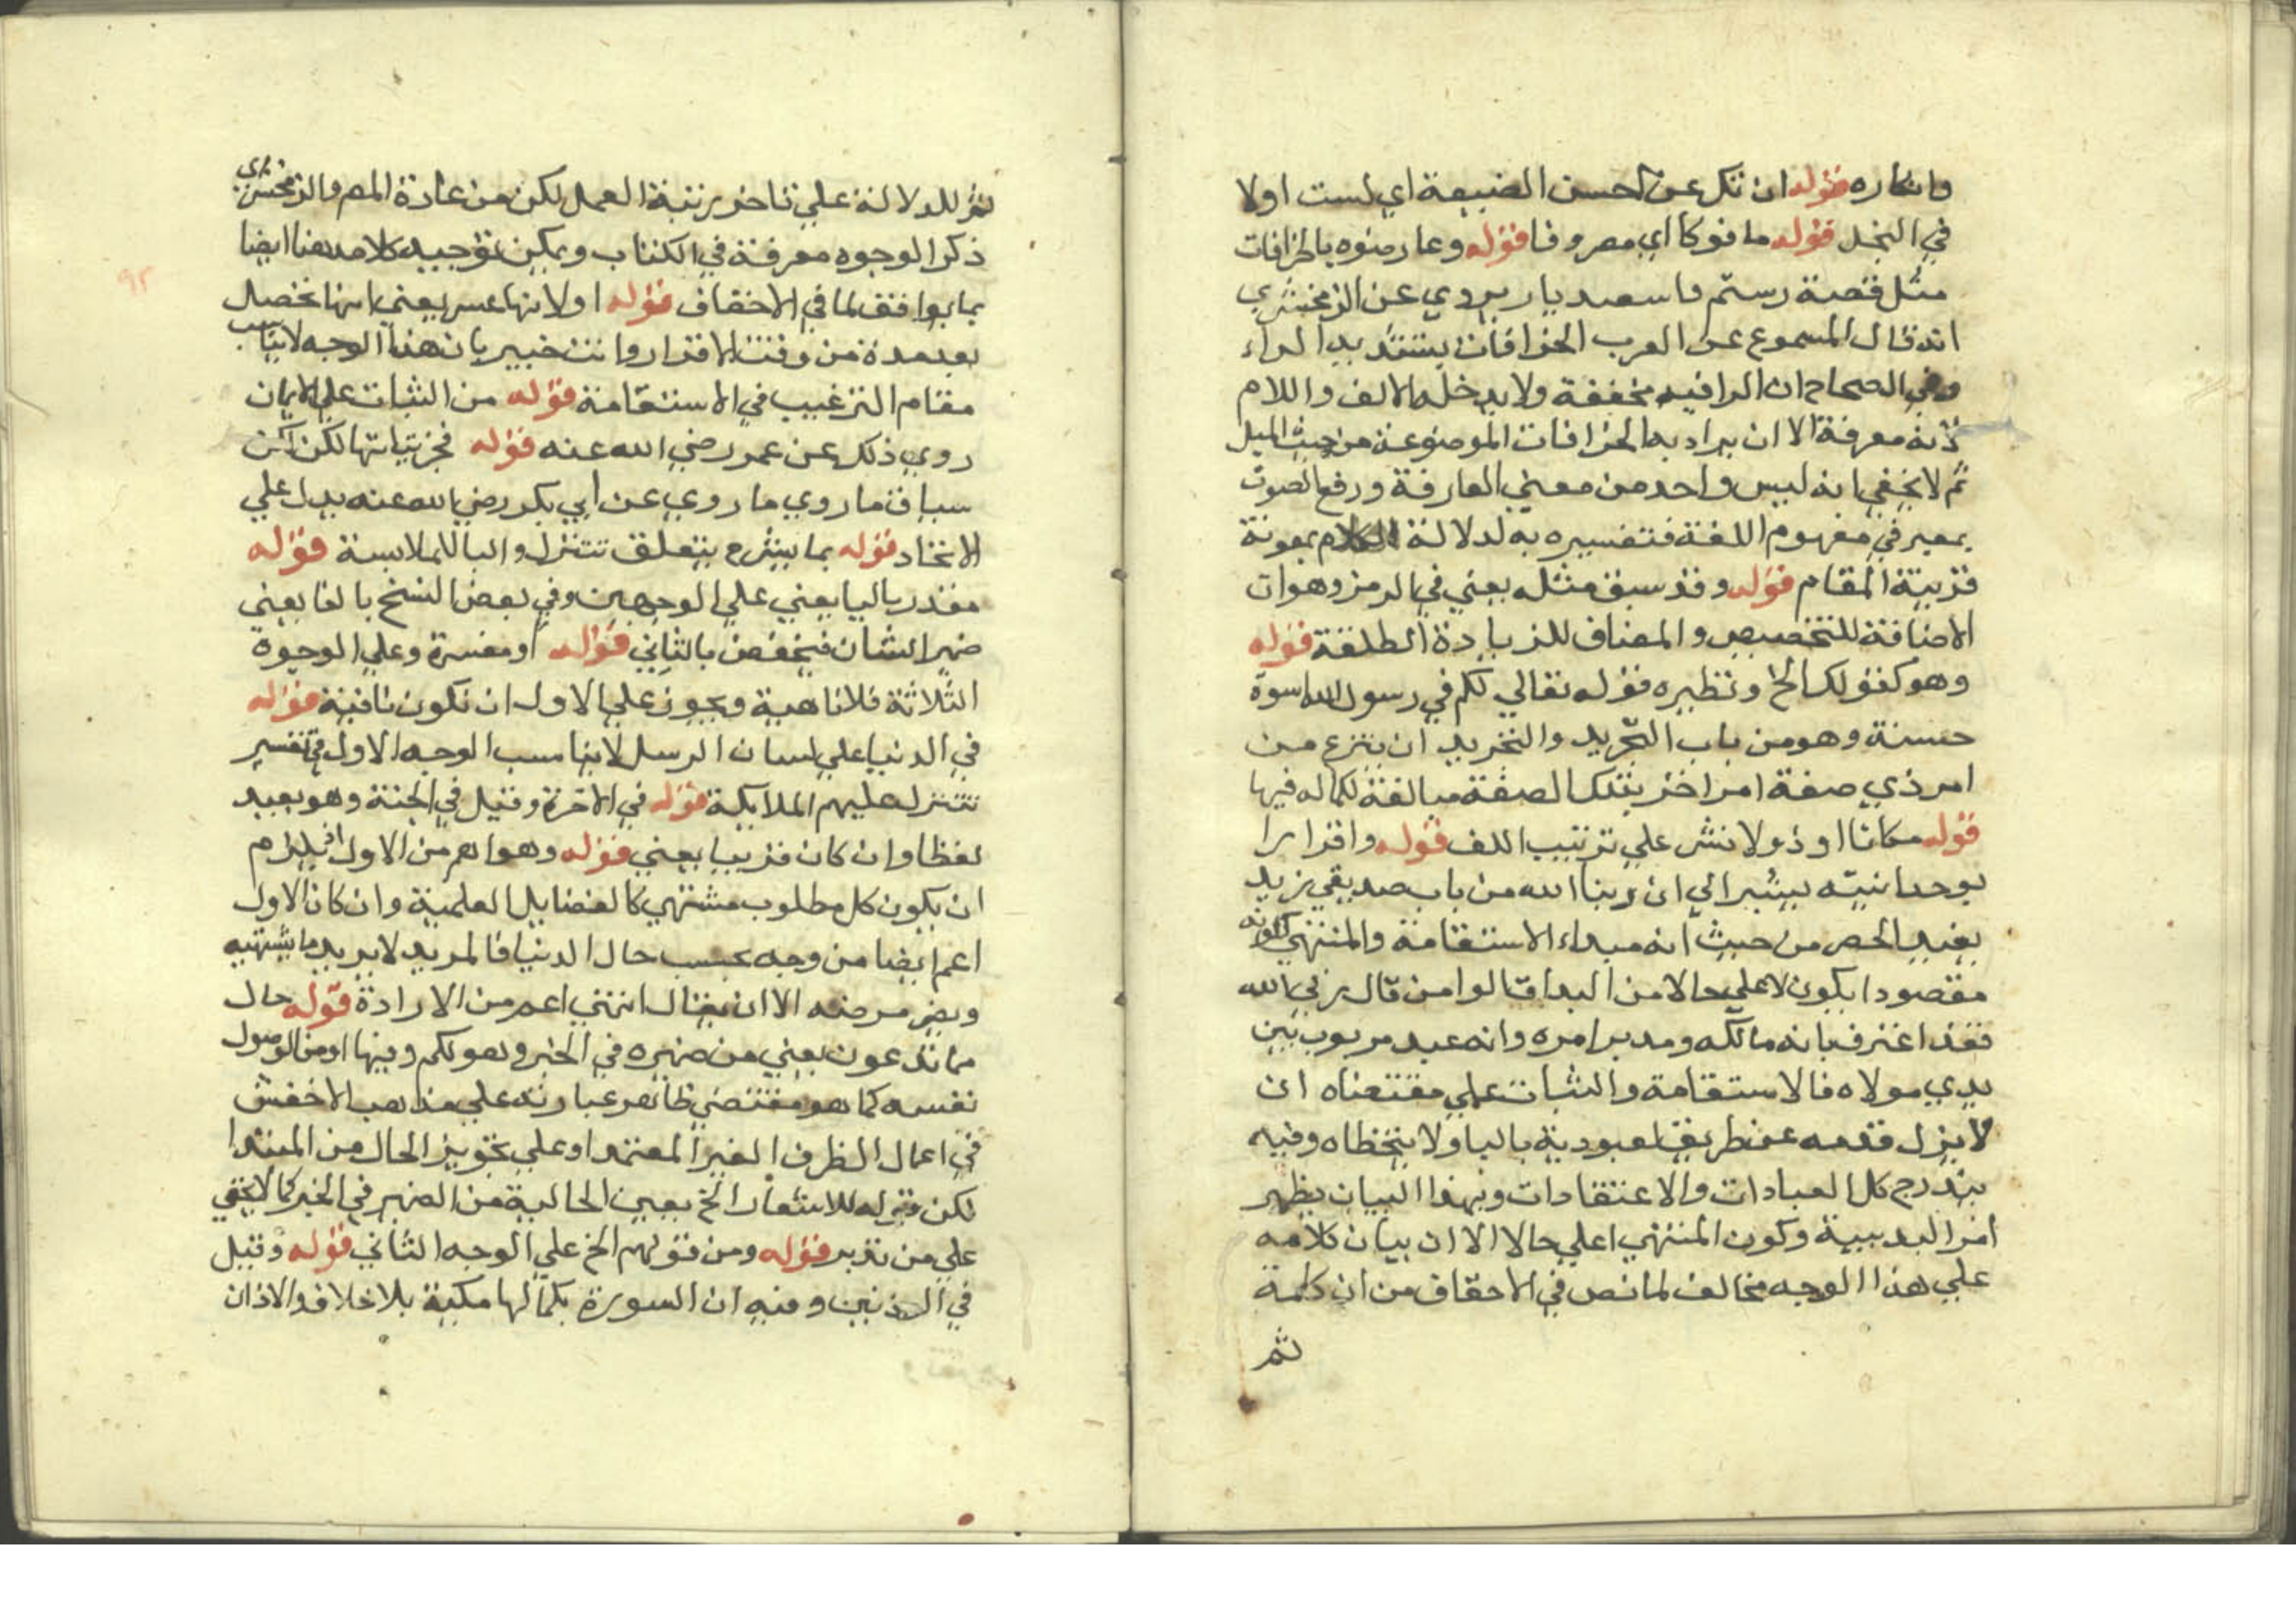 وانكاره قوله ان تك عن احسن الصنيعة اي لست اولا
في البخل قوله مافوكا اي مصروفا قوله وعارضوه بالخرافات
مثل قصة رستم واسفنديار يروي عن الزمخشري
انه قال المسموع عن العرب الخرافات بتشديد الراء
وفي الصحاح ان الرا فيه مخففة ولا يدخله الالف واللام
لانه معرفة الا ان يراد به الخرافات الموضوعة من حيث الليل
ثم لا يخفي انه ليس واحد من معني العارفة ورفع الصوت
بمعبر في مفهوم اللغة فتفسيره به لدلالة الكلام بمعونة
قرينة المقام قوله وقد سبق مثله يعني في الرمز وهو ان
الاضافة للتخصيص والمضاف للزيادة المطلقة قوله
وهو كقولك الخ ونظيره قوله تعالي لكم في رسول الله اسوة
حسنة وهو من باب التجريد والتجريد ان ينتزع من
امر ذي صفة امر اخر بتلك الصفة مبالغة لكماله فيها
قوله مكانا او ذولا نشر علي ترتيب اللف قوله واقرارا
بوحدانيته يشير الي ان ربنا الله من باب صديقي زيد
يفيد الحصر من حيث انه مبداء الاستقامة والمنتهي لكونه
مقصودا يكون لا علي حالا من البدا قالوا من قال ربي الله
فقد اعترف بانه مالكه ومدبر امره وانه عبد مربوب بين
يدي مولاه فالاستقامة والثبات علي مقتضاه ان
لا يزل قدمه عن طريق العبودية بالبا ولا يتخطاه وفيه
يندرج كل العبادات والاعتقادات وبهذا البيان يظهر
امر البديية وكون المنتهي اعلي حالا الا ان بيان كلامه
علي هذا الوجه مخالف لما نص في الاحقاف من ان كلمة
ثم
ثم للدلالة علي تاخر رتبة العمل لكن من عادة المص والزمخشري
ذكر الوجوه معرفة في الكتاب ويمكن توجيه كلامه هنا ايضا
بما يوافق لما في الاحقاف قوله اولانها عسر يعني انها تحصل
بعد مدة من وقت الاقرار وانت خبير بان هذا الوجه لا يناسب
مقام الترغيب في الاستقامة قوله من الثبات علي الايمان
روي ذلك عن عمر رضي الله عنه قوله فجزئياتها لكن
سباق ما روي ما روي عن ابي بكر رضي الله عنه يدل علي
الاتحاد قوله بما يشرع يتعلق تتنزل والبا للملابسة قوله
مقدر بالبا يعني علي الوجهين وفي بعض النسخ بالفا يعني
ضمير الشان فيختص بالثاني قوله او مفسرة وعلي الوجوه
الثلاثة فلا ناهية ويجوز علي الاول ان تكون نافية قوله
في الدنيا علي لسان الرسل لا يناسب الوجه الاول في تفسير
تتنزل عليهم الملايكة قوله في الاخرة وقيل في الجنة وهو بعيد
لفظا وان كان قريبا بعني قوله وهو اعم من الاول اذ لا يلزم
ان يكون كل مطلوب مشتهي كالفضايل العلمية وان كان الاول
اعم ايضا من وجه بحسب حال الدنيا فالمريد لا يريد ما يشتهيه
ويضر مرضه الا ان يقال التمني اعم من الارادة قوله حال
مما تدعون يعني من ضميره في الخبر وهو لكم وفيها او من الموصول
نفسه كما هو مقتضي ظاهر عبارته علي مذهب الاخفش
في اعمال الظرف الغير المعتمد او علي تجويز الحال من المبتدا
لكن قوله للاشعار الخ يعين الحالية من الضمير في الخبر كما لا يخفي
علي من تدبر قوله ومن قولهم الخ علي الوجه الثاني قوله وقيل
في المؤذنين وفيه ان السورة بكمالها مكية بلا خلاف والاذان
٩٢